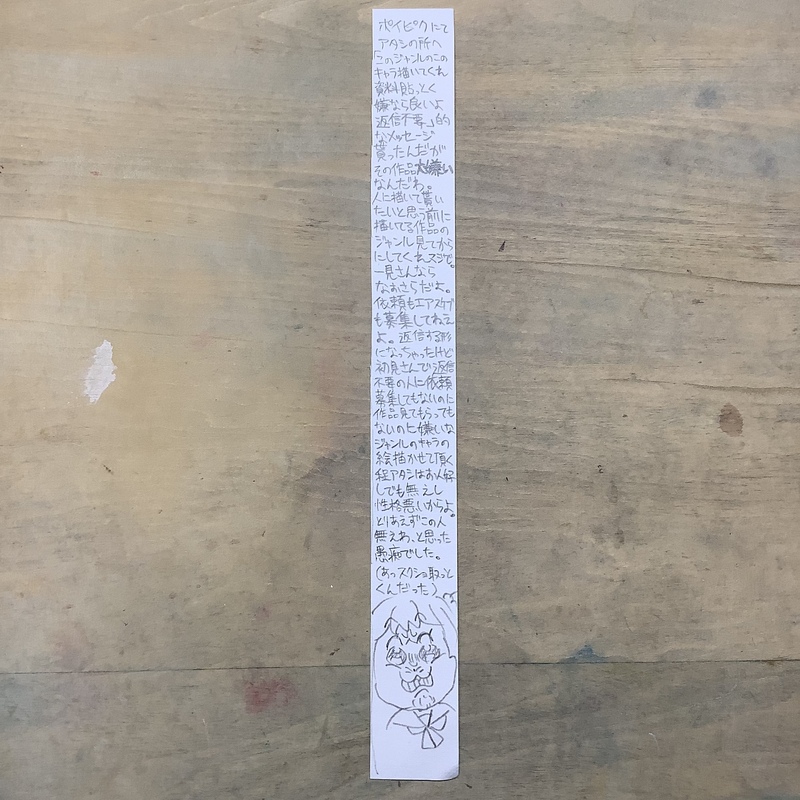 ポイピクにて
アタシの所へ
「このジャンルのこの
キャラ描いてくれ
資料貼っとく
嫌なら良いよ
返信不要」的
なメッセージ
貰ったんだが
その作品大嫌い
なんだわ。
人に描いて貰い
たいと思う前に
描いてる作品の
ジャンル見てから
にしてくれスジで。
一見さんなら
なおさらだよ。
依頼もエアスケブ
も募集してねえ
よ。返信する形
になっちゃったけど
初見さんで返信
不要の人に依頼
募集してもないのに
作品見てもらっても
ないのに嫌いな
ジャンルのキャラの
絵描かせて頂く
程アタシはお人好
しでも無えし
性格悪いからよ。
とりあえずこの人
無えわ、と思った
愚痴でした。
(あっスクショ取っと
くんだった)